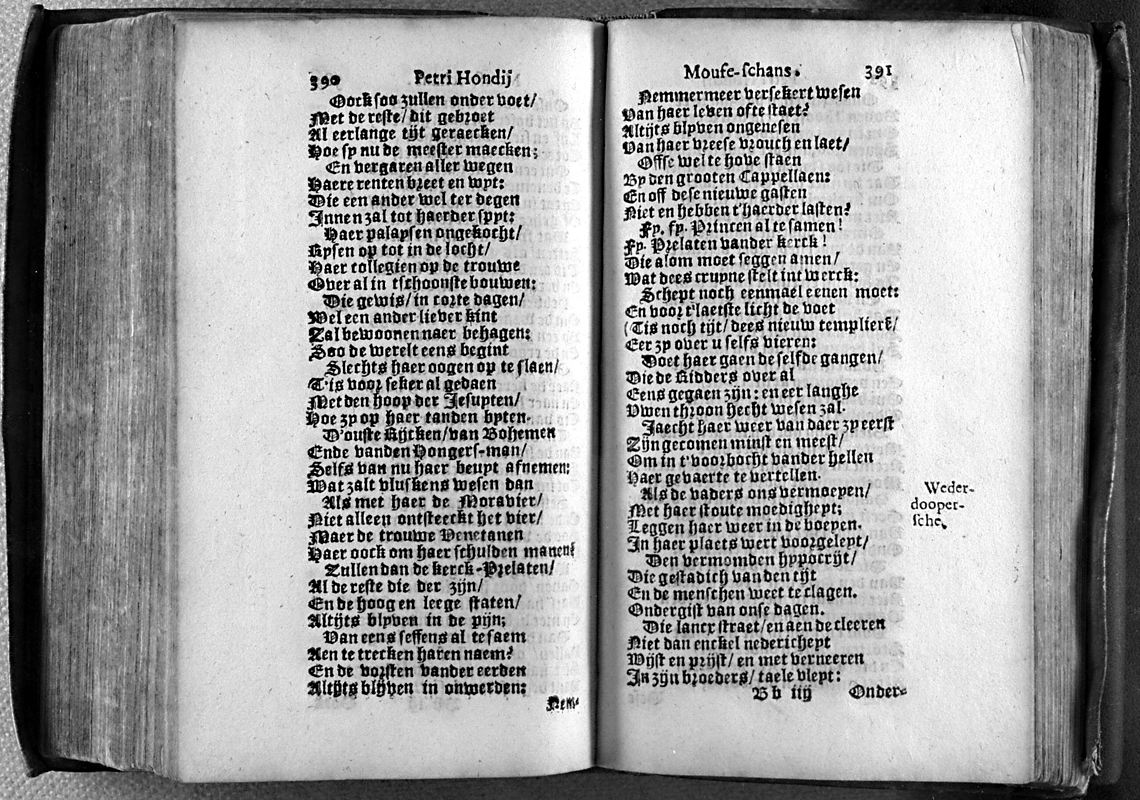 390 Petri Hondij
Oock soo zullen onder voet/
Met de reste/ dit gebroet
Al eerlange tijt geraecken/
Hoe sy nu de meester maecken;
En vergaren aller wegen
Haere renten breet en wyt:
Die een ander wel ter degen
Innen zal tot haerder spyt:
Haer palaysen ongekocht/
Rysen op tot in de locht/
Haer collegien op de trouwe
Over al in tschoonste bouwen:
Die gewis/ in corte dagen/
Wel een ander liever kint
Zal bewoonen naer behagen:
Soo de werelt eens begint
Slechts haer oogen op te slaen/
T'is voor seker al gedaen
Met den hoop der Jesuyten/
Hoe zy op haer tanden byten.
D'ouste Rijcken/ van Bohemen
Ende vanden Hongers-man/
Selfs van nu haer beuyt afnemen:
Wat zalt vluskens wesen dan
Als met haer de Moravier/
Niet alleen ontsteeckt het vier/
Maer de trouwe Venetanen
Haer oock om haer schulden manen?
Zullen dan de kerck-Prelaten/
Al de reste die der zijn/
En de hoog en leege staten/
Altijts blyven in de pijn;
Van eens seffens al te saem
Aen te trecken haren naem?
En de vorsten vander eerden
Altijts blijven in onwerden:
Nem-
Mouse-schans. 391
Nemmermeer versekert wesen
Van haer leven ofte staet?
Altijts blyven ongenesen
Van haer vreese vrouch en laet/
Offse wel te hove staen
By den grooten Cappellaen:
En off dese nieuwe gasten
Niet en hebben t'haerder lasten?
Fy. fy. Princen al te samen!
Fy. Prelaten vander kerck!
Die alom moet seggen amen/
Wat dees cruyne stelt int werck:
Schept noch eenmael eenen moet:
En voor t'laetste licht de voet
(Tis noch tijt/ dees nieuw templiers/
Eer zy over u selfs vieren:
Doet haer gaen de selfde gangen/
Die de Ridders over al
Eens gegaen zijn: en eer langhe
Vwen throon hecht wesen zal.
Jaecht haer weer van daer zy eerst
Zijn gecomen minst en meest/
Om in t'voorbocht vander hellen
Haer gevaerte te vertellen.
Als de vaders ons vermoeyen/
Met haer stoute moedigheyt;
Leggen haer weer in de boeyen.
In haer plaets wert voorgeleyt/
Den vermomden hypocrijt/
Die gestadich van den tijt
En de menschen weet te clagen.
Ondergist van onse dagen.
Die lancx straet/ en aen de cleeren
Niet dan enckel nedericheyt
Wijst en prijst/ en met verneeren
In zijn broeders/ taele vleyt:
Bb iij Onder-
Weder-
dooper-
sche.